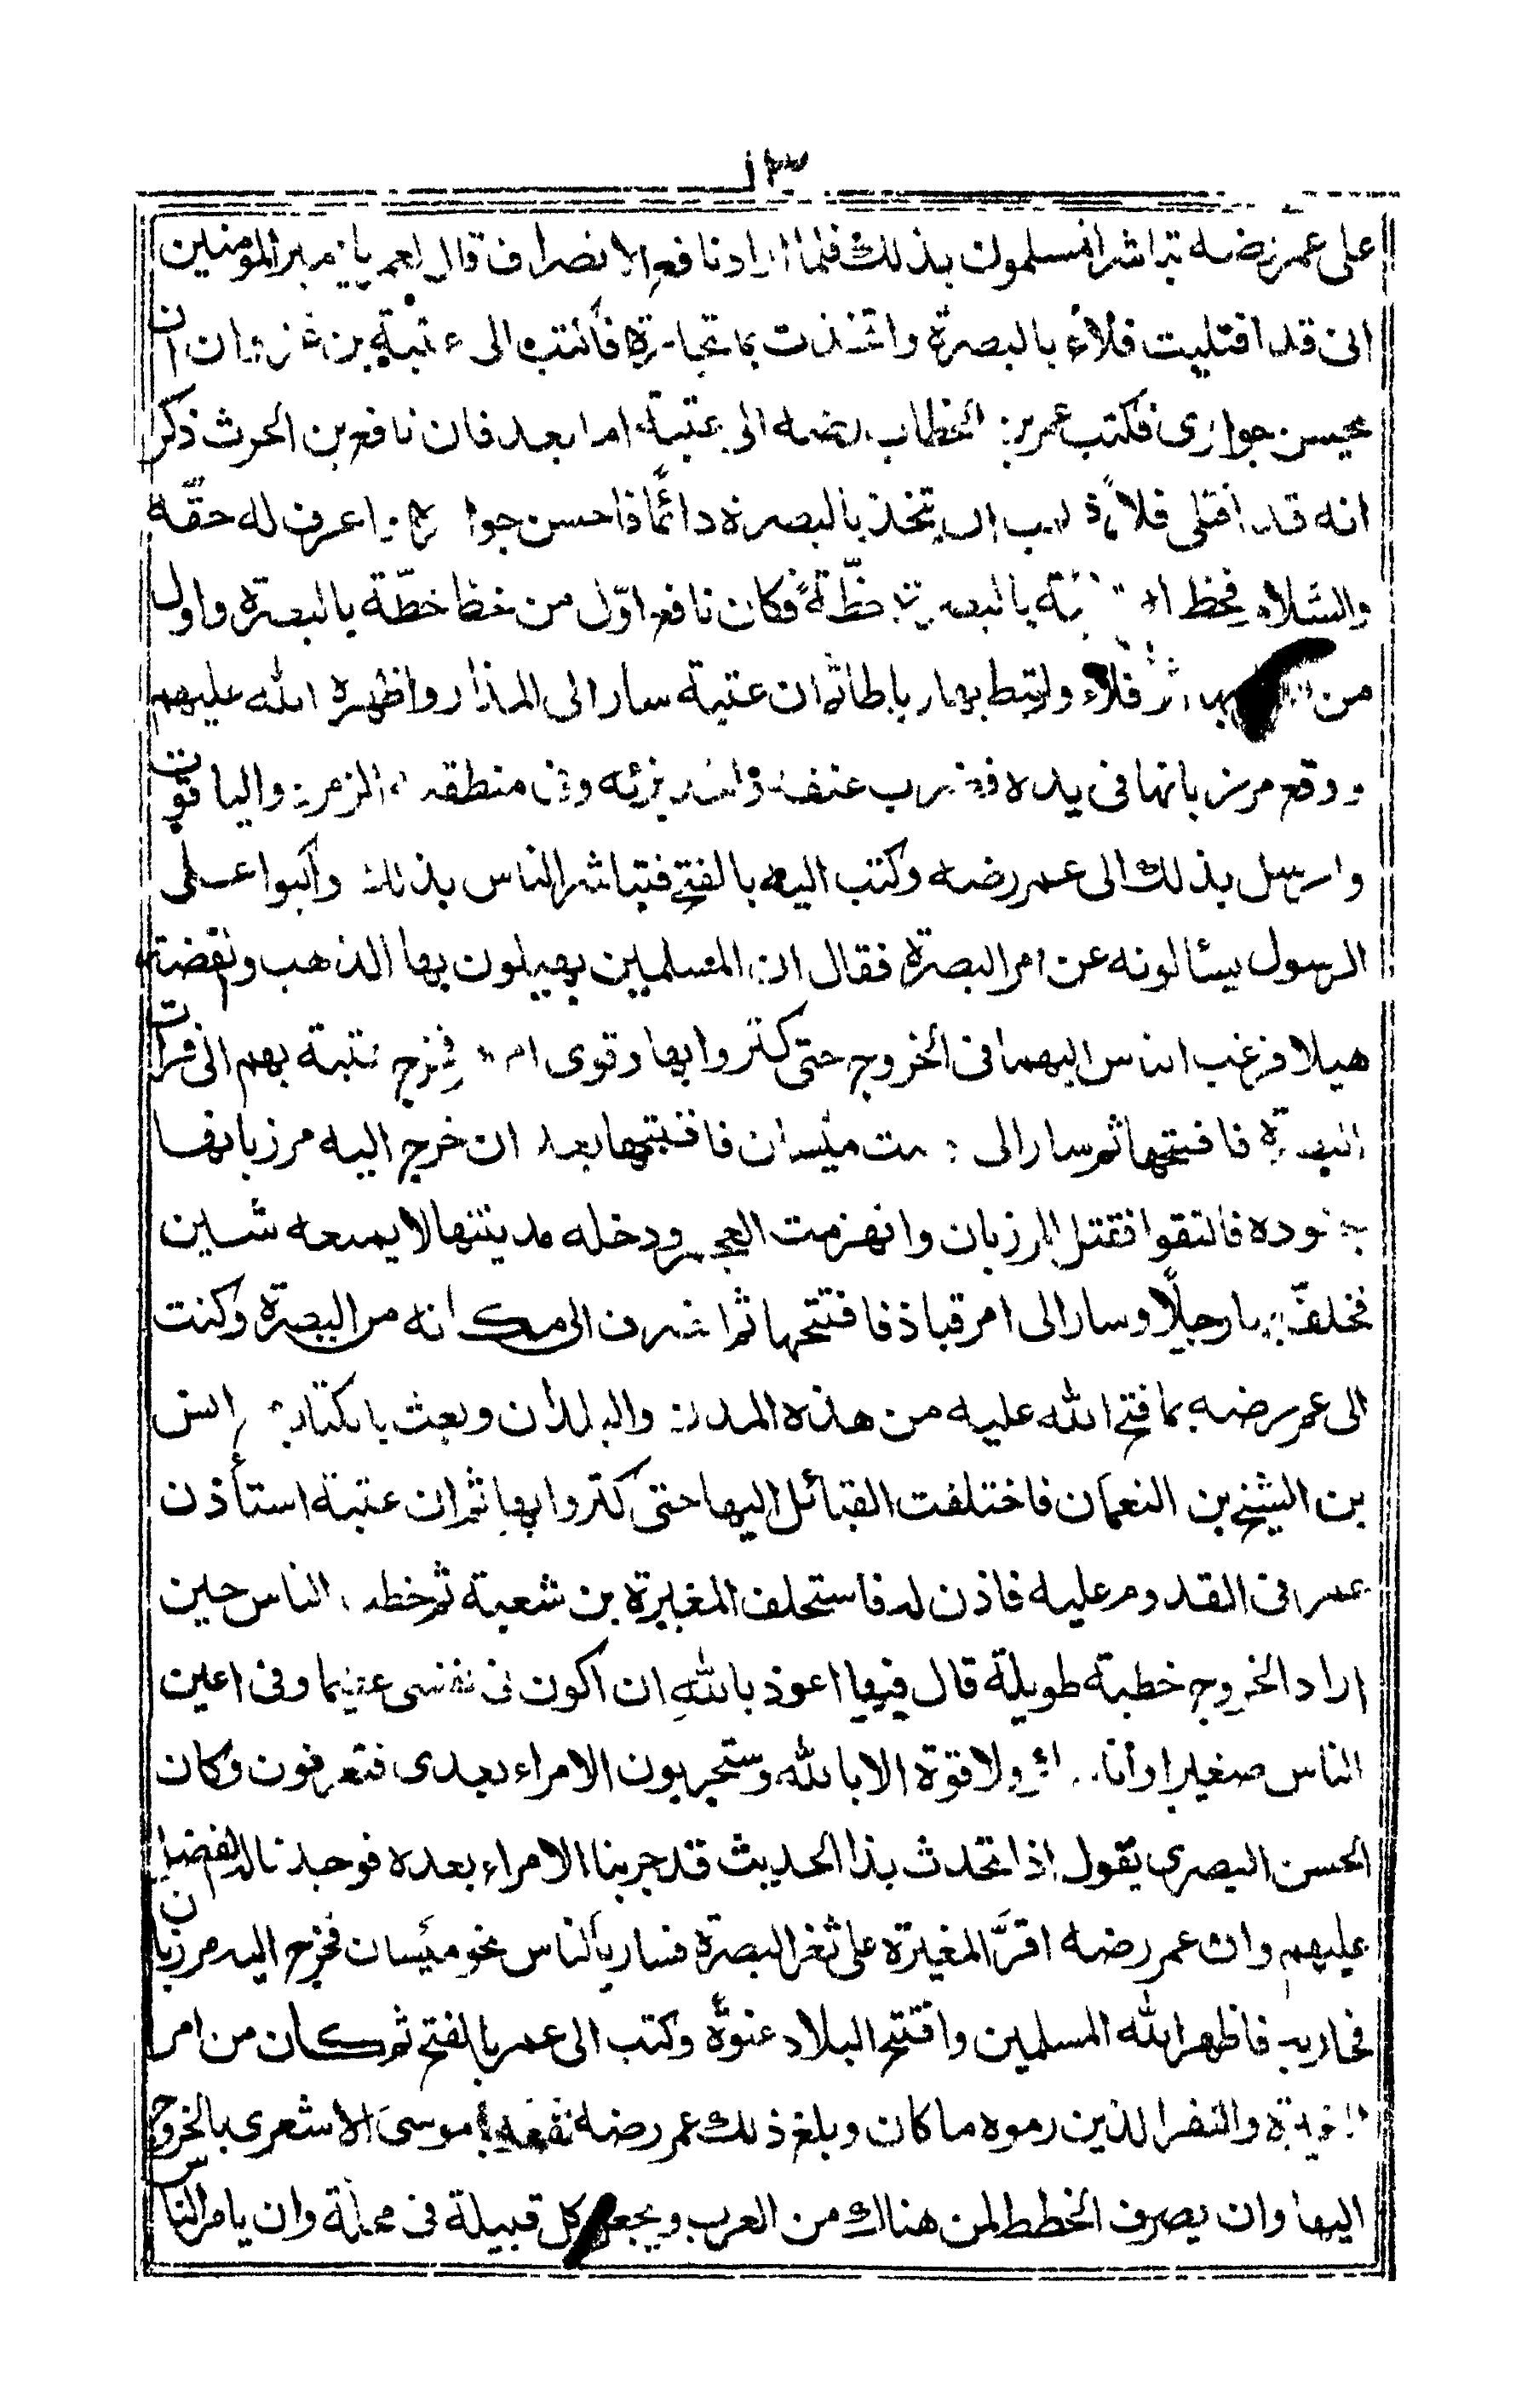 ١٣
على عمر رضه تباشر المسلمون بذلك فلما اراد نافع الانصراف قال لعمر يا امير المومنين
انى قد افتليت فلاء بالبصرة واتخذت بها تجارة فاكتب الى عتبة بن غزوان ان
يحسن جوارى فكتب عمر بن الخطاب رضه الى عتبة اما بعد فان نافع بن الحرث ذكر
انه قد افتلى فلاء يتخذ بالبصرة دائما فاحسن جواره واعرف له حقّه
والسّلام فخط بالبصرة خطّةً فكان نافع اوّل من خط خطّة بالبصرة واول
من فلاء وارتبط بها رباطا ثم ان عتبة سار الى المذار واظهره الله عليهم
ووقع مرزبانها فى يده فضرب عنقه واخذ بزته وفى منطقته الزمرد والياقوت
وارسل بذلك الى عمر رضه وكتب اليه بالفتح فتباشر الناس بذلك واكبوا على
الرسول يسألونه عن امر البصرة فقال ان المسلمين يهيلون بها الذهب والفضة
هيلا فرغب الناس اليهما فى الخروج حتى كثروا بها وقوى فخرج عتبة بهم الى فرات
البصرة فافتتحها ثم سار الى دست ميسان فافتتحها بعد ان خرج اليه مرزبانها
بجنوده فالتقوا فقتل المرزبان وانهزمت العجم ودخله مدينتها لا يمنعه شىن
فخلف بها رجلًا وسار الى ابرقباذ فافتتحها ثم انصرف الى مكانه من البصرة وكتب
الى عمر رضه بما فتح الله عليه من هذه المدن والبلدان وبعث بالكتاب انس
بن الشيخ بن النعمان فاختلفت القبائل اليها حتى كثروا بها ثم ان عتبة استأذن
عمر فى القدوم عليه فاذن له فاستخلف المغيرة بن شعبة ثم خطب الناس حين
اراد الخروج خطبة طويلة قال فيها اعوذ باللهِ ان اكون فى نفسى عظيما وفى اعين
الناس صغيرا وأنا ولا قوة الا بالله وستجربون الامراء بعدى فتعرفون وكان
الحسن البصرى يقول اذا تحدث بذا الحديث قد جربنا الامراء بعده فوجدنا له الفضل
عليهم وان عمر رضه اقرَّ المغيرة على ثغر البصرة فسار بالناس نحو ميسان فخرج اليه مرزبان
فحاربه فاظهر الله المسلمين وافتتح البلاد عنوة وكتب الى عمر بالفتح ثم كان من امر
المغيرة والنفر الذين رموه ما كان وبلغ ذلك عمر رضه موسى الاشعرى بالخروج
اليها وان يصرف الخطط لمن هناك من العرب ويجعل كل قبيلة فى محلة وان يامر الناس